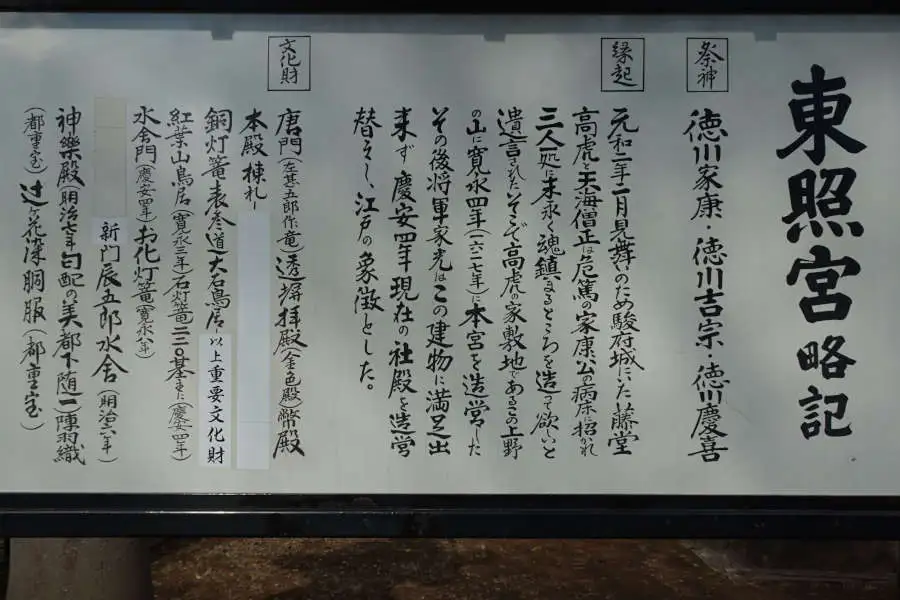 東照宮略記
祭神
徳川家康・徳川吉宗・徳川慶喜
縁起
元和二年二月見舞いのため駿府城にいた藤堂
高虎と天海僧正は危篤の家康公の病床に招かれ
三人一処に末永く魂鎮まるところを造って欲しいと
遺言された そこで高虎の家敷地であるこの上野
の山に寛永四年(一六二七年)に本宮を造営した
その後将軍家光はこの建物に満足出
来ず 慶安四年現在の社殿を造営
替えし、江戸の象徴とした。
文化財
唐門(左甚五郎作竜)透塀 拝殿(金色殿)幣殿
本殿 棟札
銅灯篭 表参道大石鳥居 以上重要文化財
紅葉山鳥居(寛永三年)石灯篭二三〇基(慶安四年)
水舎門(慶安四年)お化灯篭(寛永八年)
新門辰五郎水舎(明治六年)
神樂殿(明治七年勾配の美都下随一)陳羽織
(都重宝) 辻ヶ花染胴服(都重宝)